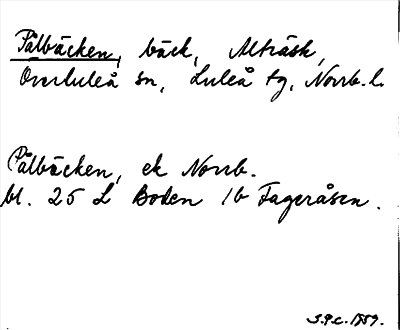 Pålbäcken, bäck, Alträsk,
Överluleå sn, Luleå tg, Norrb. l.
Pålbäcken, ek Norrb.
bl. 25 L Boden 1b Fageråsen.
S.P.C. 1959.